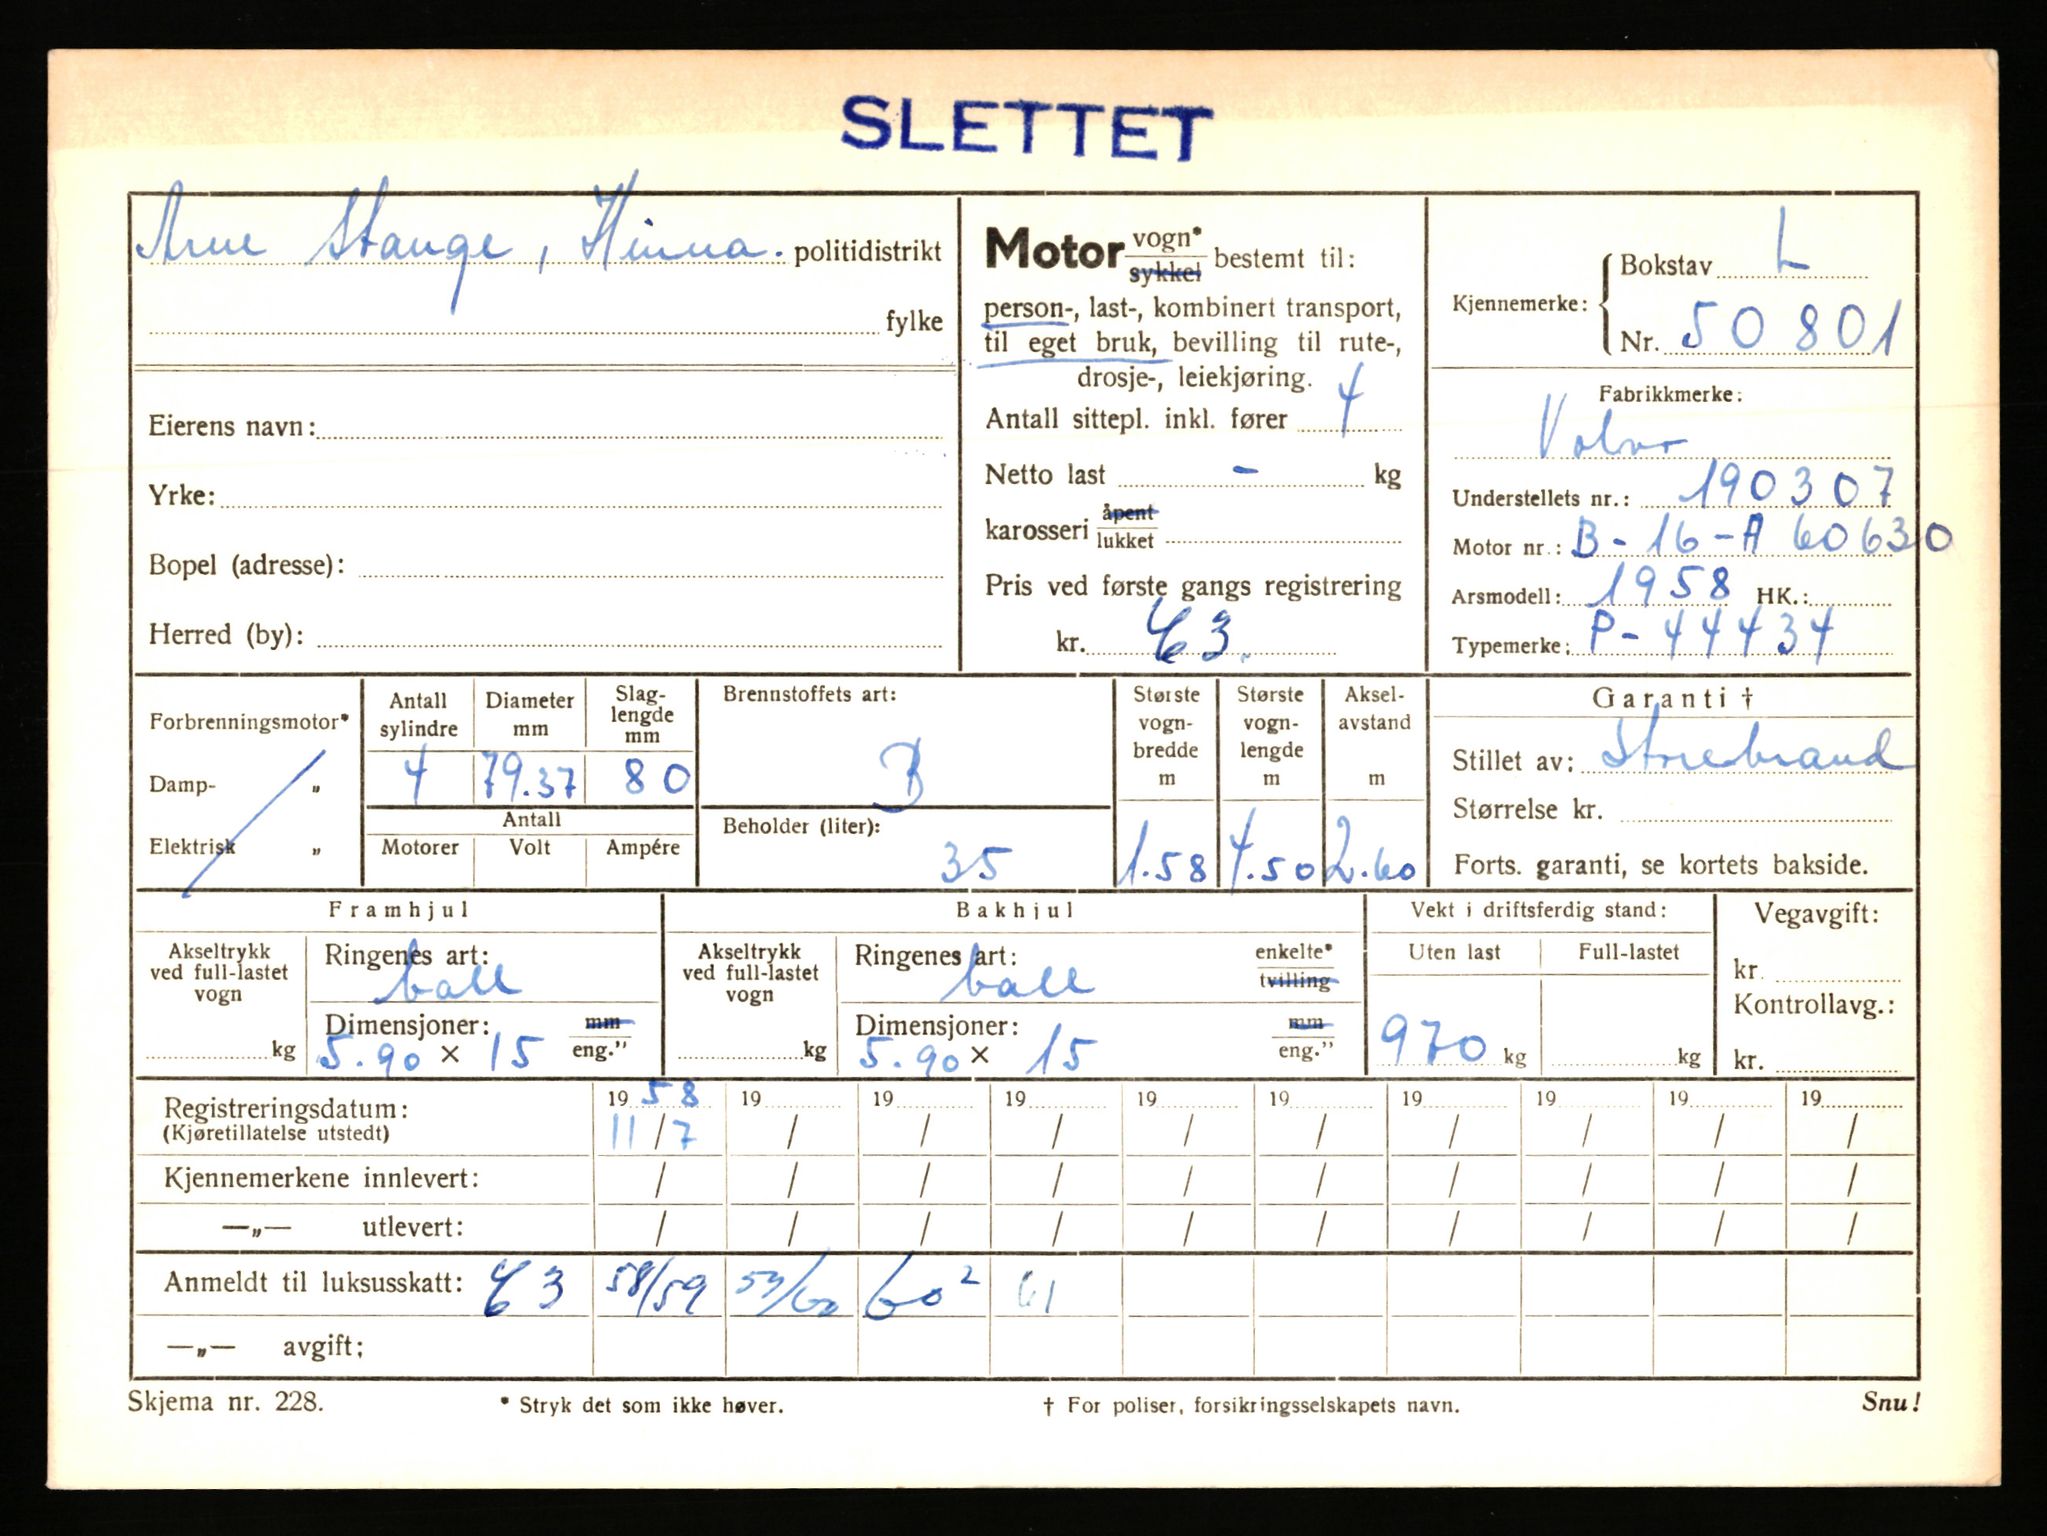 SLETTET
Arne Stange, Hinna. politidistrikt
fylke
Eierens navn:
Yrke:
Bopel (adresse):
Herred (by):
Motor vogn* / sykkel bestemt til:
person-, last-, kombinert transport,
til eget bruk, bevilling til rute-,
drosje-, leiekjøring.
Antall sittepl. inkl. fører 4
Netto last - kg
karosseri åpent / lukket
Pris ved første gangs registrering
kr. 63.
Kjennemerke: Bokstav L
Nr. 50801
Fabrikkmerke:
Volvo
Understellets nr.: 190307
Motor nr.: B-16-A 60630
Arsmodell: 1958 HK.:
Typemerke: P-44434
Forbrenningsmotor*
Damp- „
Elektrisk „
Antall sylindre 4
Diameter mm 79.37
Slag-lengde mm 80
Antall
Motorer Volt Ampére
Brennstoffets art:
B
Beholder (liter):
35
Største vogn-bredde m 1.58
Største vogn-lengde m 4.50
Aksel-avstand m 2.60
Garanti †
Stillet av: Storebrand
Størrelse kr.
Forts. garanti, se kortets bakside.
Framhjul
Akseltrykk ved full-lastet vogn
kg
Ringenes art:
ball
Dimensjoner: mm
5.90 × 15 eng."
Bakhjul
Akseltrykk ved full-lastet vogn
kg
Ringenes art: enkelte* / tvilling
ball
Dimensjoner: mm
5.90 × 15 eng."
Vekt i driftsferdig stand:
Uten last Full-lastet
970 kg kg
Vegavgift:
kr.
Kontrollavg.:
kr.
Registreringsdatum: 1958 19 19 19 19 19 19 19 19 19
(Kjøretillatelse utstedt) 11/7 / / / / / / / / /
Kjennemerkene innlevert: / / / / / / / / / /
—„— utlevert: / / / / / / / / / /
Anmeldt til luksusskatt: 63 58/59 59/60 60² 61
—„— avgift:
Skjema nr. 228. * Stryk det som ikke høver. † For poliser, forsikringsselskapets navn. Snu!